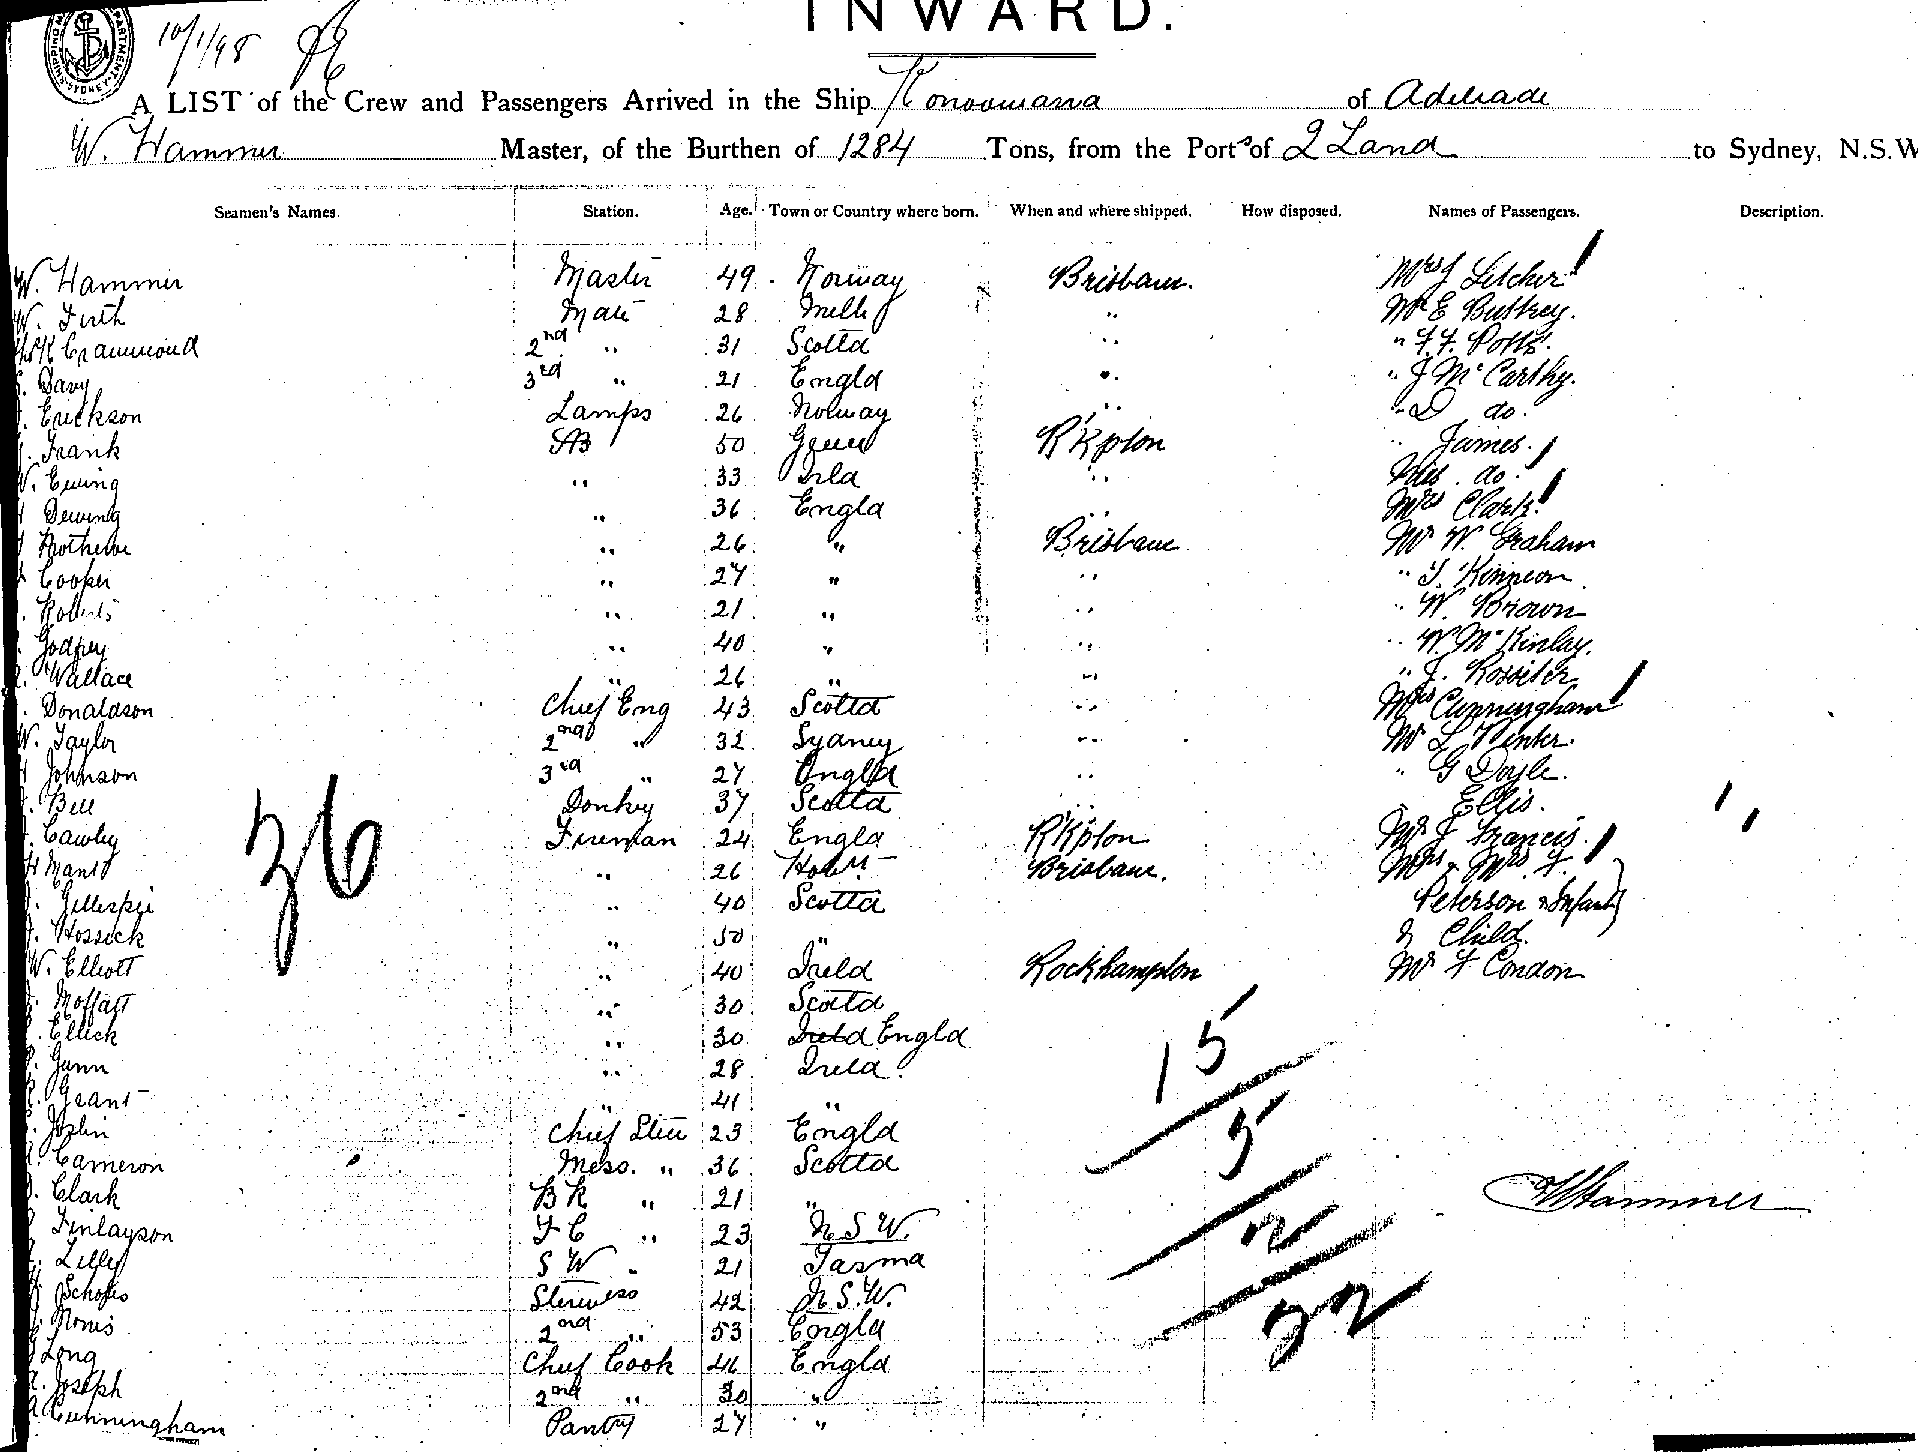 INWARD.
10/1/98
A LIST of the Crew and Passengers Arrived in the Ship Konoowarra of Adelaide
W. Hammer Master, of the Burthen of 1284 Tons, from the Port of Q Land to Sydney, N.S.W
Seamen's Names. Station. Age. Town or Country where born. When and where shipped. How disposed. Names of Passengers. Description.
W. Hammer Master 49 Norway Brisbane. Mrs J Letcher
W. Firth Mate 28 Melb " Mr E Buttrey.
Crammond 2nd " 31 Scotld " " F.F. Potts.
Davy 3rd " 21 Engld " " J McCarthy.
Erickson Lamps 26 Norway " " D do.
Frank AB 50 R'Kpton " James.
W. Ewing " 33 Irld " do.
Dewing " 36 Engld " Mrs Clark
" 26 " Brisbane Mr W. Graham
Cooper " 27 " " "
Roberts " 21 " " " W. Brown
Godfrey " 40 " " " W. McKinlay.
Wallace " 26 " " " J. Rossiter
Donaldson Chief Eng 43 Scotld " Mrs Cunningham
W. Taylor 2nd " 32 Sydney " Mr L Venter.
Johnson 3rd " 27 Engld " " G Doyle.
Bell Donkey 37 Scotld " " Ellis.
Cawley Fireman 24 Engld R'Kpton Mr J Francis.
Mant " 26 Hobt Brisbane. Mr & Mrs F.
Gillespie " 40 Scotld Peterson & Infant
Hossack " 50 " & Child.
W. Elliott " 40 Ireld Rockhampton Mr F Condon
Moffatt " 30 Scotld
Ellick " 30 Ireld Engld
Gunn " 28 Ireld.
Grant " 41 "
Joslin Chief Stew 23 Engld
Cameron Mess. " 36 Scotld
Clark BR " 21 "
Finlayson FC " 23 N.S.W.
Lilley SW " 21 Tasma
Stewess 42 N.S.W.
Norris 2nd " 53 Engld
Long Chief Cook 46 Engld
Joseph 2nd " 30 "
Cunningham Pantry 27 "
36
15
5
2
22
W Hammer